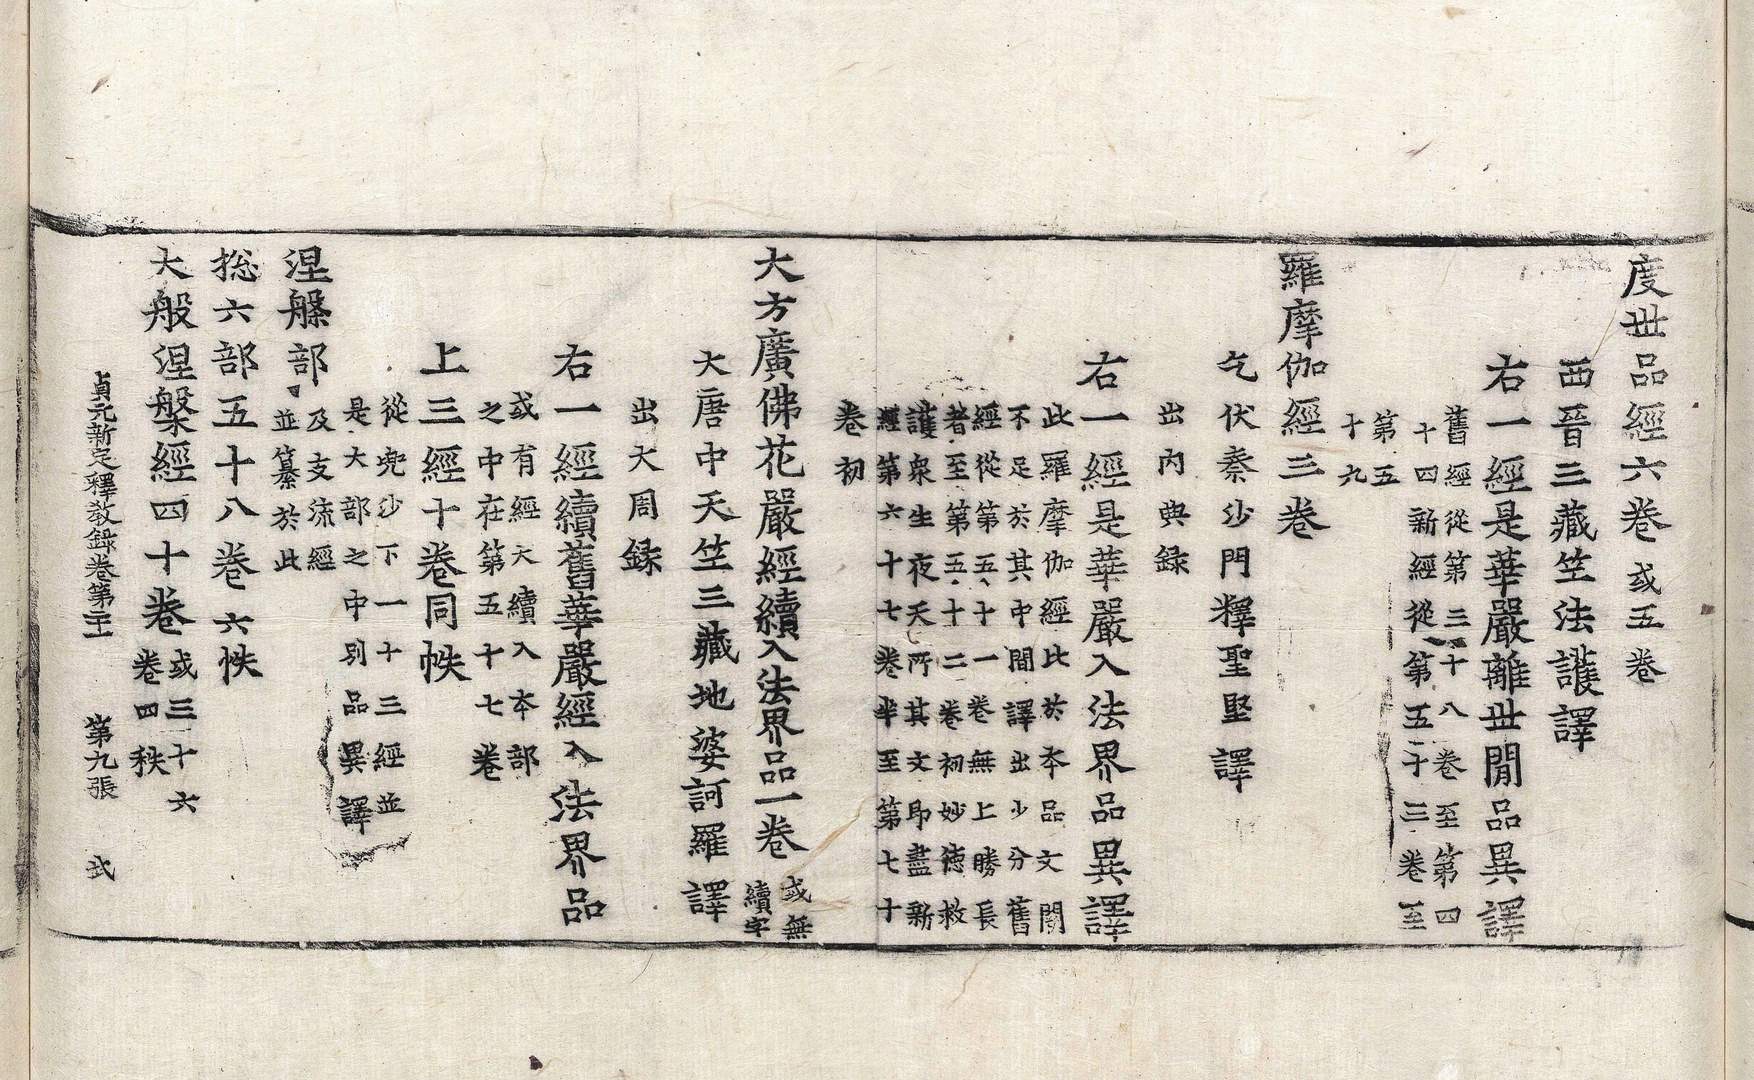 度丗品經六卷或五卷
西晉三藏竺法護譯
右一經是華嚴離丗閒品異譯
舊經從第三十八卷至第四
十四新經從第五十三卷至
第五
十九
羅摩伽經三卷
乞伏秦沙門釋聖堅譯
出內典録
右一經是華嚴入法界品異譯
此羅摩伽經比於本品文闕
不足於其中間譯出少分舊
經從第五十一卷無上勝長
者至第五十二卷初妙德救
護衆生夜天所其文即盡新
經第六十七卷半至第七十
卷初
大方廣佛花嚴經續入法界品一卷
或無
續字
大唐中天竺三藏地婆訶羅譯
出大周録
右一經續舊華嚴經入法界品
或有經大續入本部
之中在第五十七卷
上三經十卷同帙
從兜沙下一十三經並
是大部之中別品異譯
涅槃部
及支流經
並纂於此
捴六部五十八卷六帙
大般涅槃經四十卷
或三十六
卷四秩
貞元新定釋敎錄卷第二十一 第九張 弍